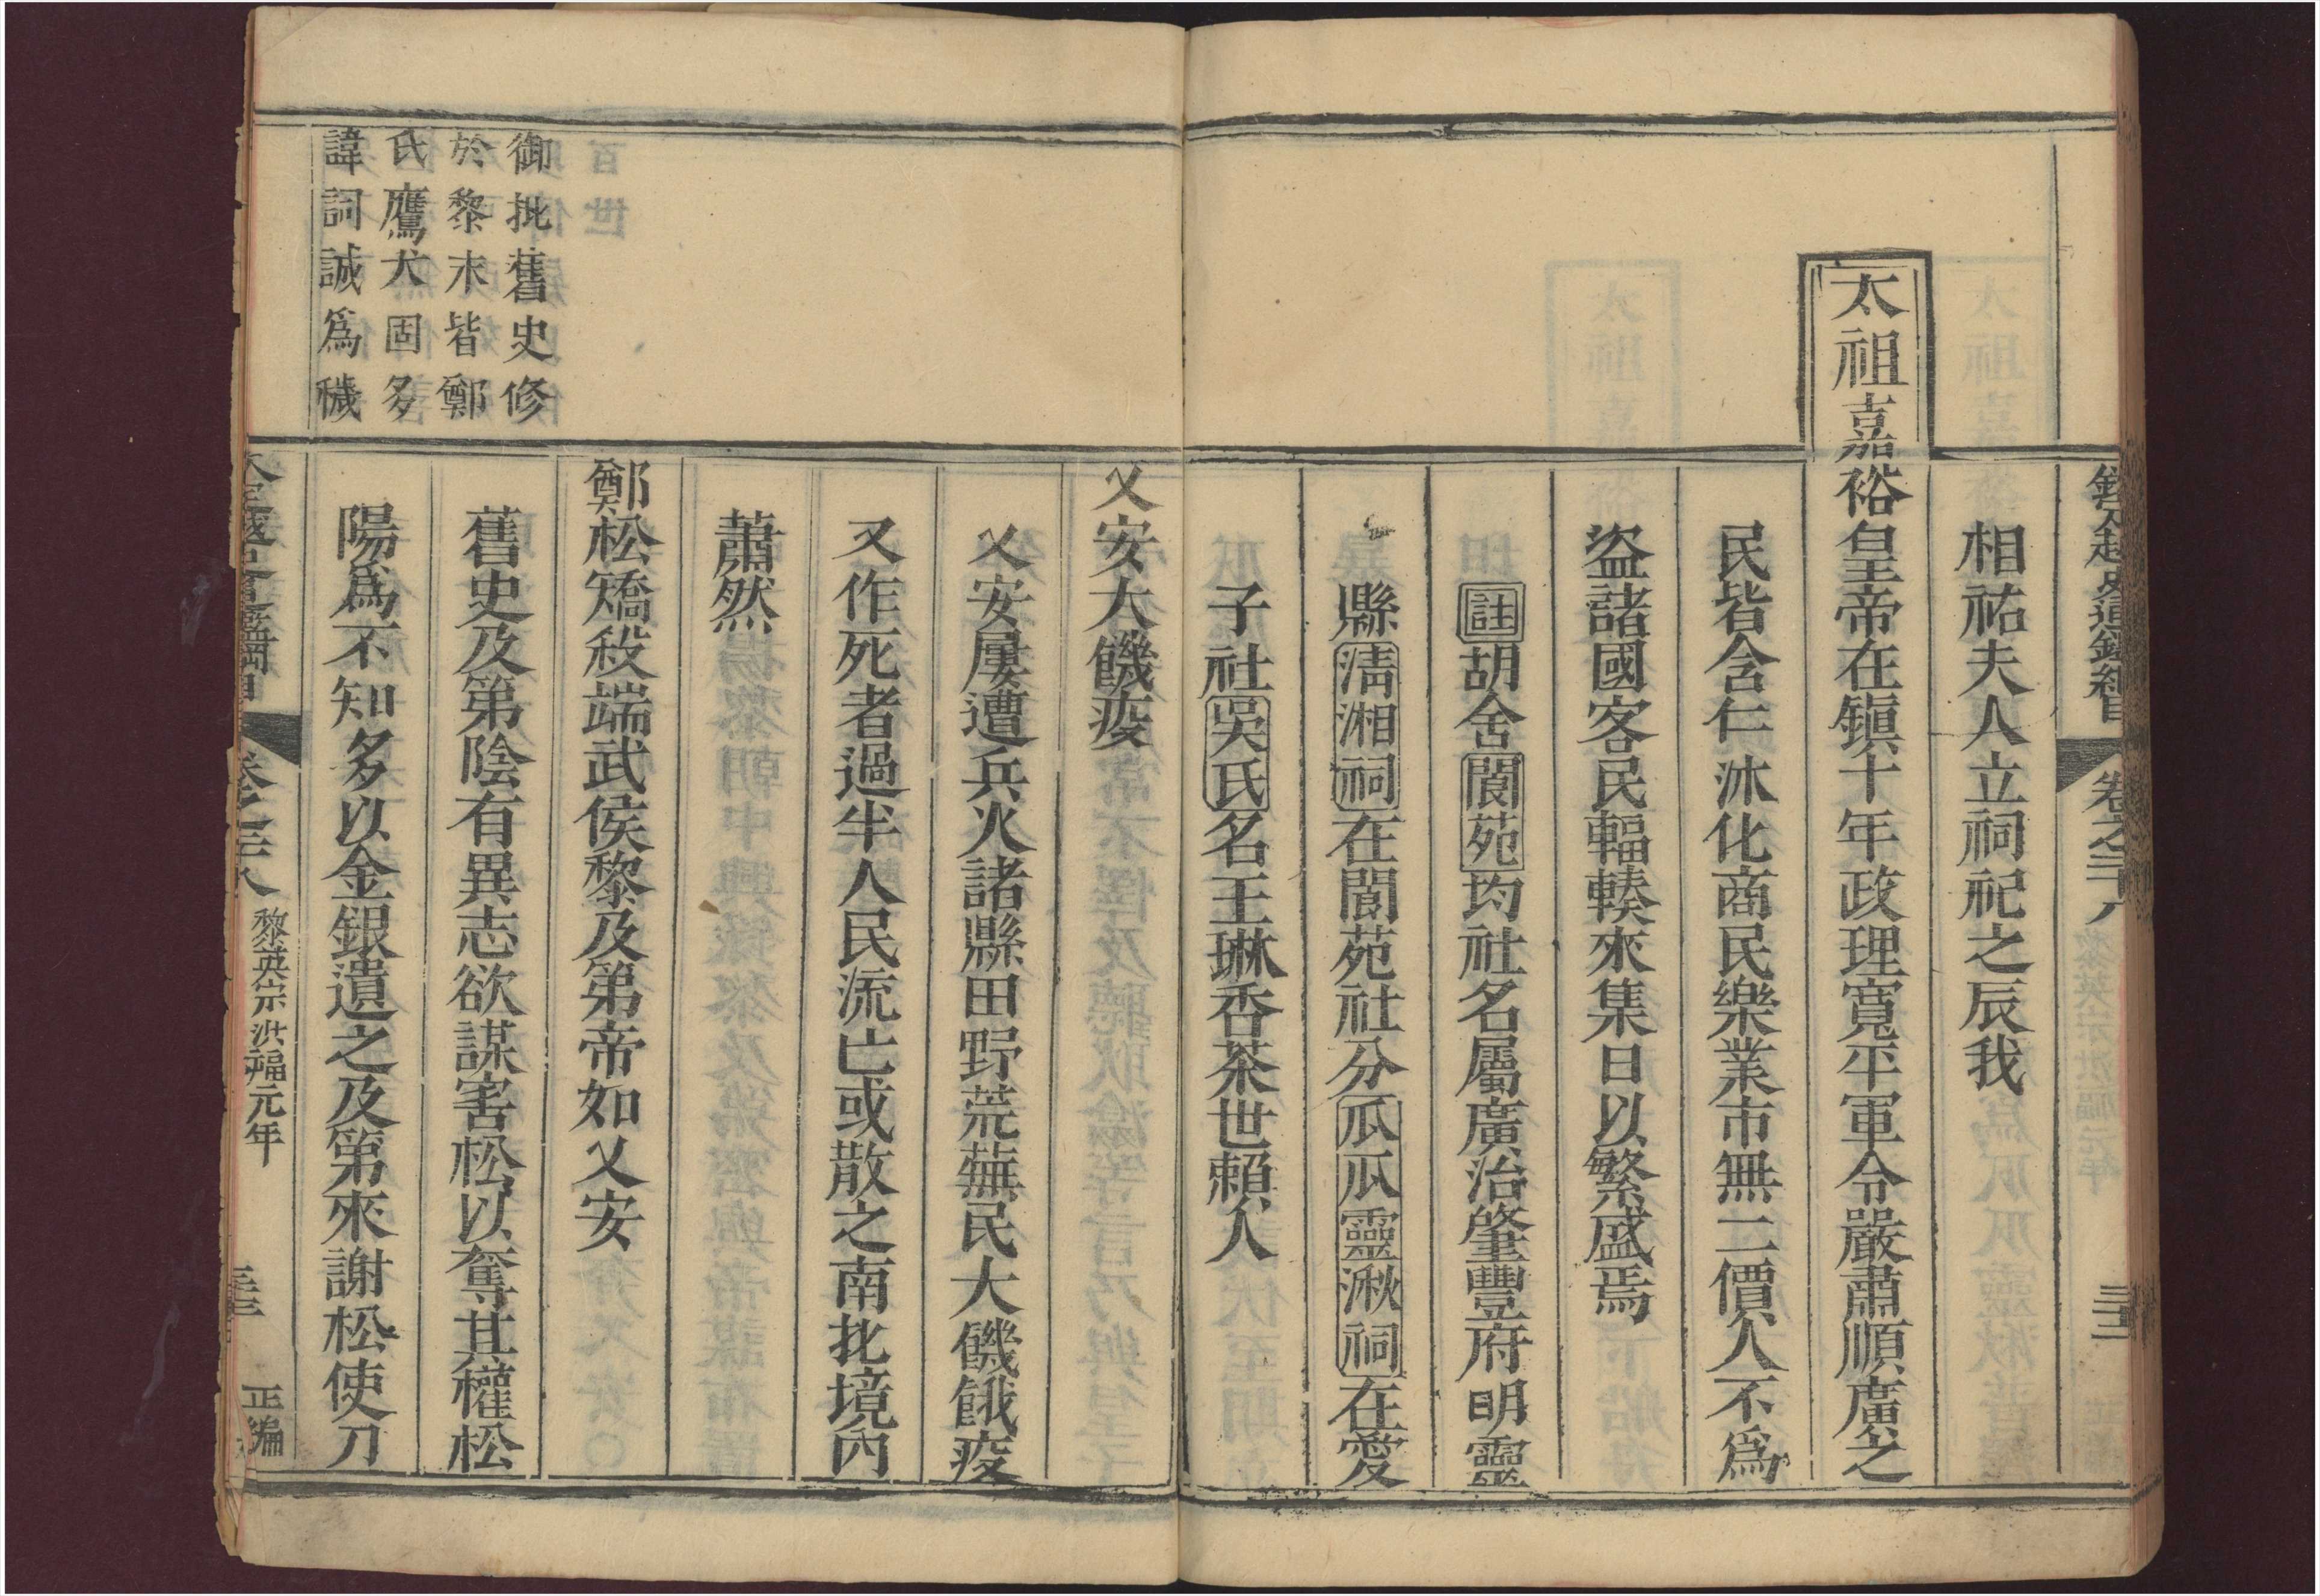 欽定越史通鑑綱目 卷之二十八 三十二
相祐夫人立祠祀之辰我
太祖嘉裕皇帝在鎮十年政理寬平軍令嚴肅順廣之
民皆含仁沐化商民樂業市無二價人不爲
盜諸國客民輻輳來集日以繁盛焉
註胡舍閬苑均社名屬廣治肇豐府明靈
縣淸湘祠在閬苑社分瓜瓜靈湫祠在愛
子社吳氏名王琳香茶世賴人
乂安大饑疫
乂安屢遭兵火諸縣田野荒蕪民大饑餓疫
又作死者過半人民流亡或散之南北境內
蕭然
鄭松矯殺端武侯黎及第帝如乂安
御批舊史修
於黎末皆鄭
氏鷹犬固多
諱詞誠爲穢
舊史及第陰有異志欲謀害松以奪其權松
陽爲不知多以金銀遺之及第來謝松使刀
欽定越史通鑑綱目 卷之二十八 黎英宗洪福元年 正編